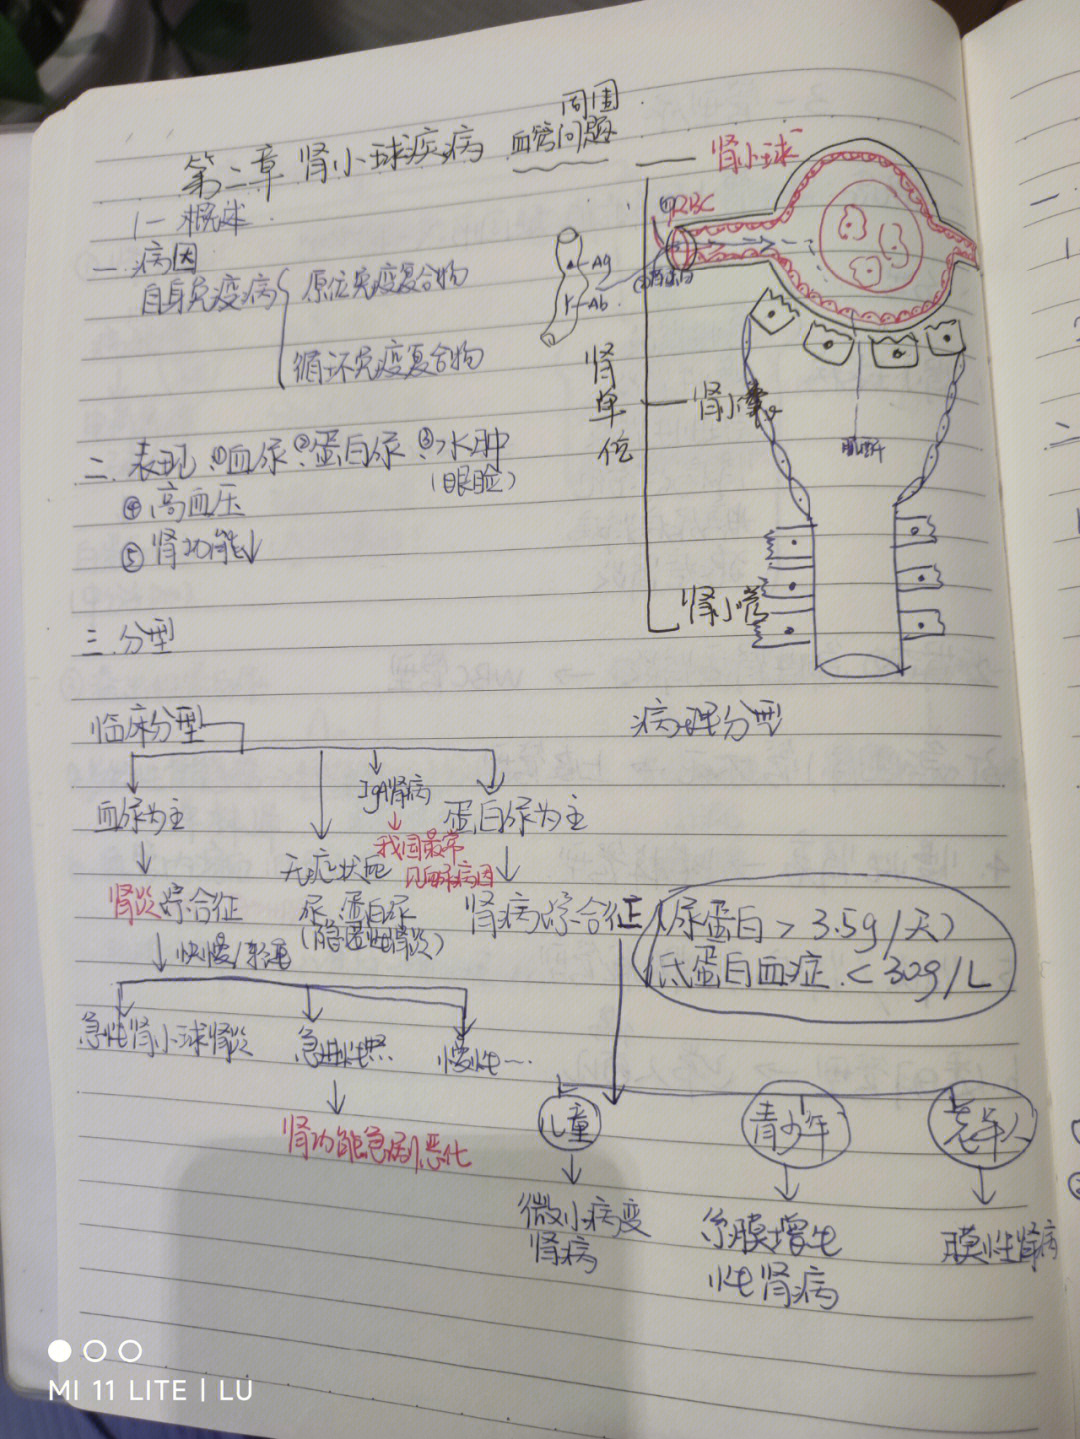 周围
第二章 肾小球疾病 血管问题
肾小球
(一 概述
一.病因
自身免疫病 原位免疫复合物
循环免疫复合物
①RBC
Ag
Ab
肾单位
肾小囊
肾小管
二.表现 ①血尿 ②蛋白尿 ③水肿
(眼睑)
④高血压
⑤肾功能↓
三.分型
临床分型
病理分型
血尿为主
IgA肾病
蛋白尿为主
我国最常
无症状血
尿、蛋白尿
(隐匿性肾炎)
肾炎综合征
肾病综合征 (尿蛋白>3.5g/天)
低蛋白血症.<30g/L
快慢/
急性肾小球肾炎
急进性
慢性…
肾功能急剧恶化
儿童
青少年
老年人
微小病变
肾病
系膜增生
性肾病
膜性肾病
MI 11 LITE | LU